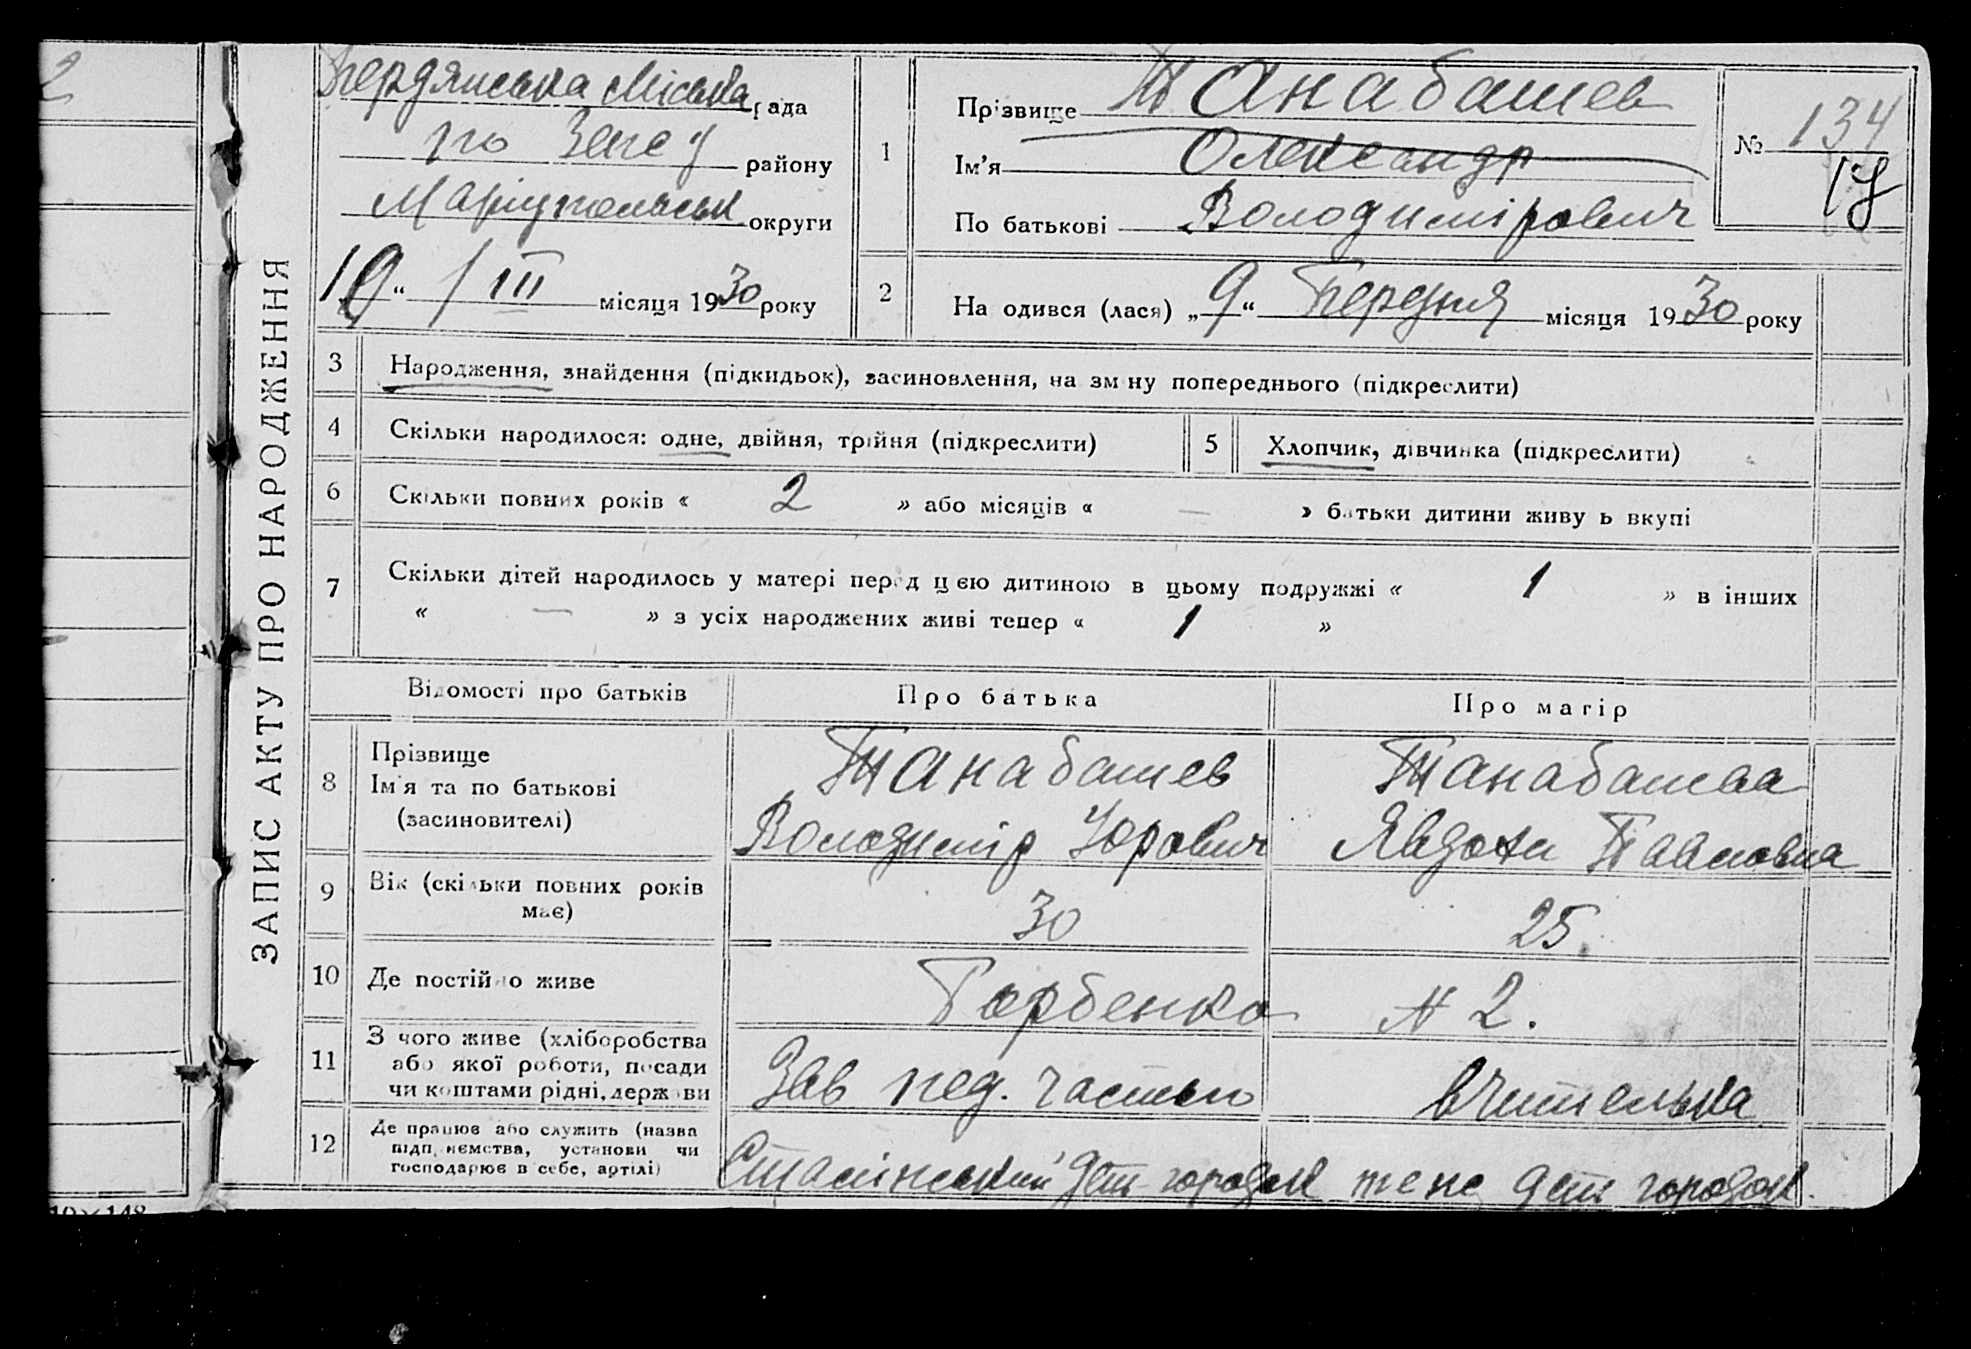 2
ЗАПИС АКТУ ПРО НАРОДЖЕННЯ
Бердянська Міська рада
по Загсу району
Маріупольськ округи
19 " / III місяця 1930 року
1
Прізвище Танабашев
Ім'я Олександр
По батькові Володимірович
№ 134
17
2
На одився (лася) „9" Березня місяця 1930 року
3 Народження, знайдення (підкидьок), засиновлення, на зм ну попереднього (підкреслити)
4 Скільки народилося: одне, двійня, трійня (підкреслити)
5 Хлопчик, дівчинка (підкреслити)
6 Скільки повних років « 2 » або місяців « — » батьки дитини живу ь вкупі
7 Скільки дітей народилось у матері перед цією дитиною в цьому подружжі « 1 » в інших
« — » з усіх народжених живі тепер « 1 »
Відомості про батьків Про батька Про матір
8 Прізвище
Ім'я та по батькові
(засиновителі)
Танабашев
Володимір Юрович
Танабашева
Явдоха Павловна
9 Вік (скільки повних років має) 30 25
10 Де постійно живе Горбенко № 2.
11 З чого живе (хліборобства
або якої роботи, посади
чи коштами рідні, держави
Зав пед. частью
вчителька
12 Де працює або служить (назва
підприємства, установи чи
господарює в себе, артілі)
Сталінський дет городок
дет городок.